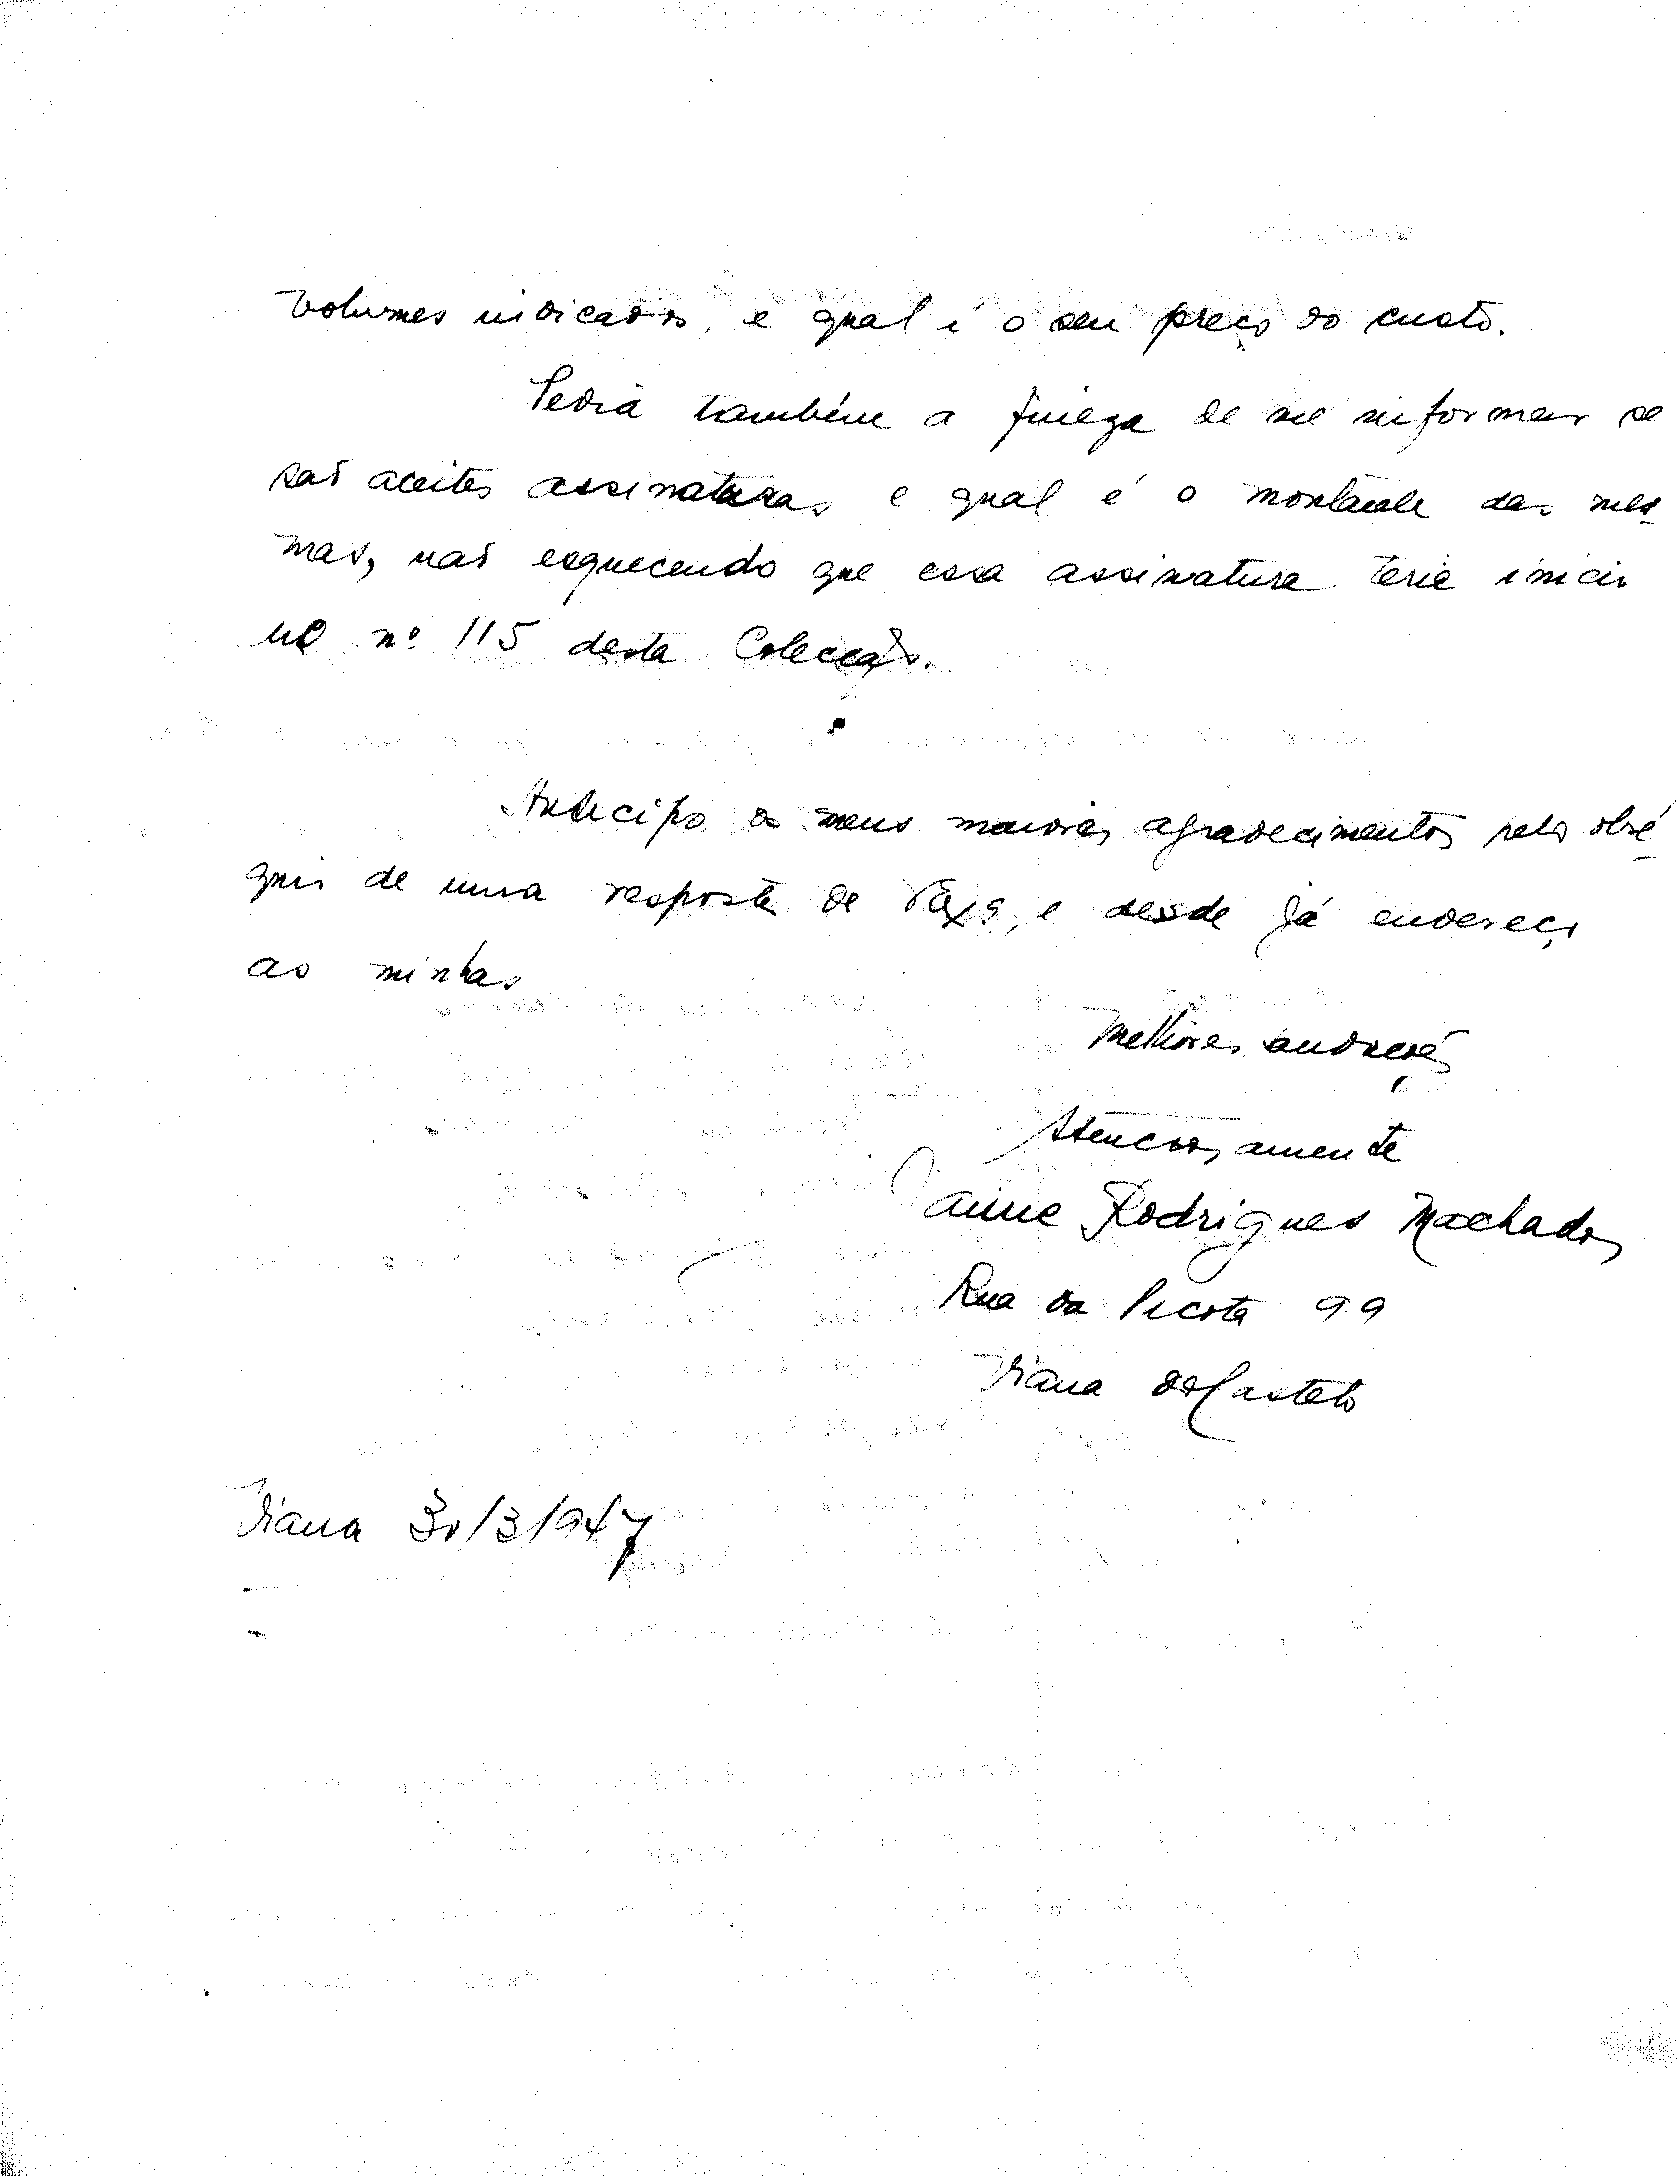 volumes indicados, e qual é o seu preço do custo.
Pedia também a fineza de me informar se
são aceites assinaturas e qual é o montante das mes-
mas, não esquecendo que essa assinatura teria inicio
no nº 115 desta Colecção.
Antecipo os meus maiores agradecimentos pelo obsé-
quio de uma resposta de V. Ex.as, e desde já endereço
as minhas
Melhores saudações
Atenciosamente
Jaime Rodrigues Machado
Rua da Picota 99
Viana do Castelo
Viana 30/3/947